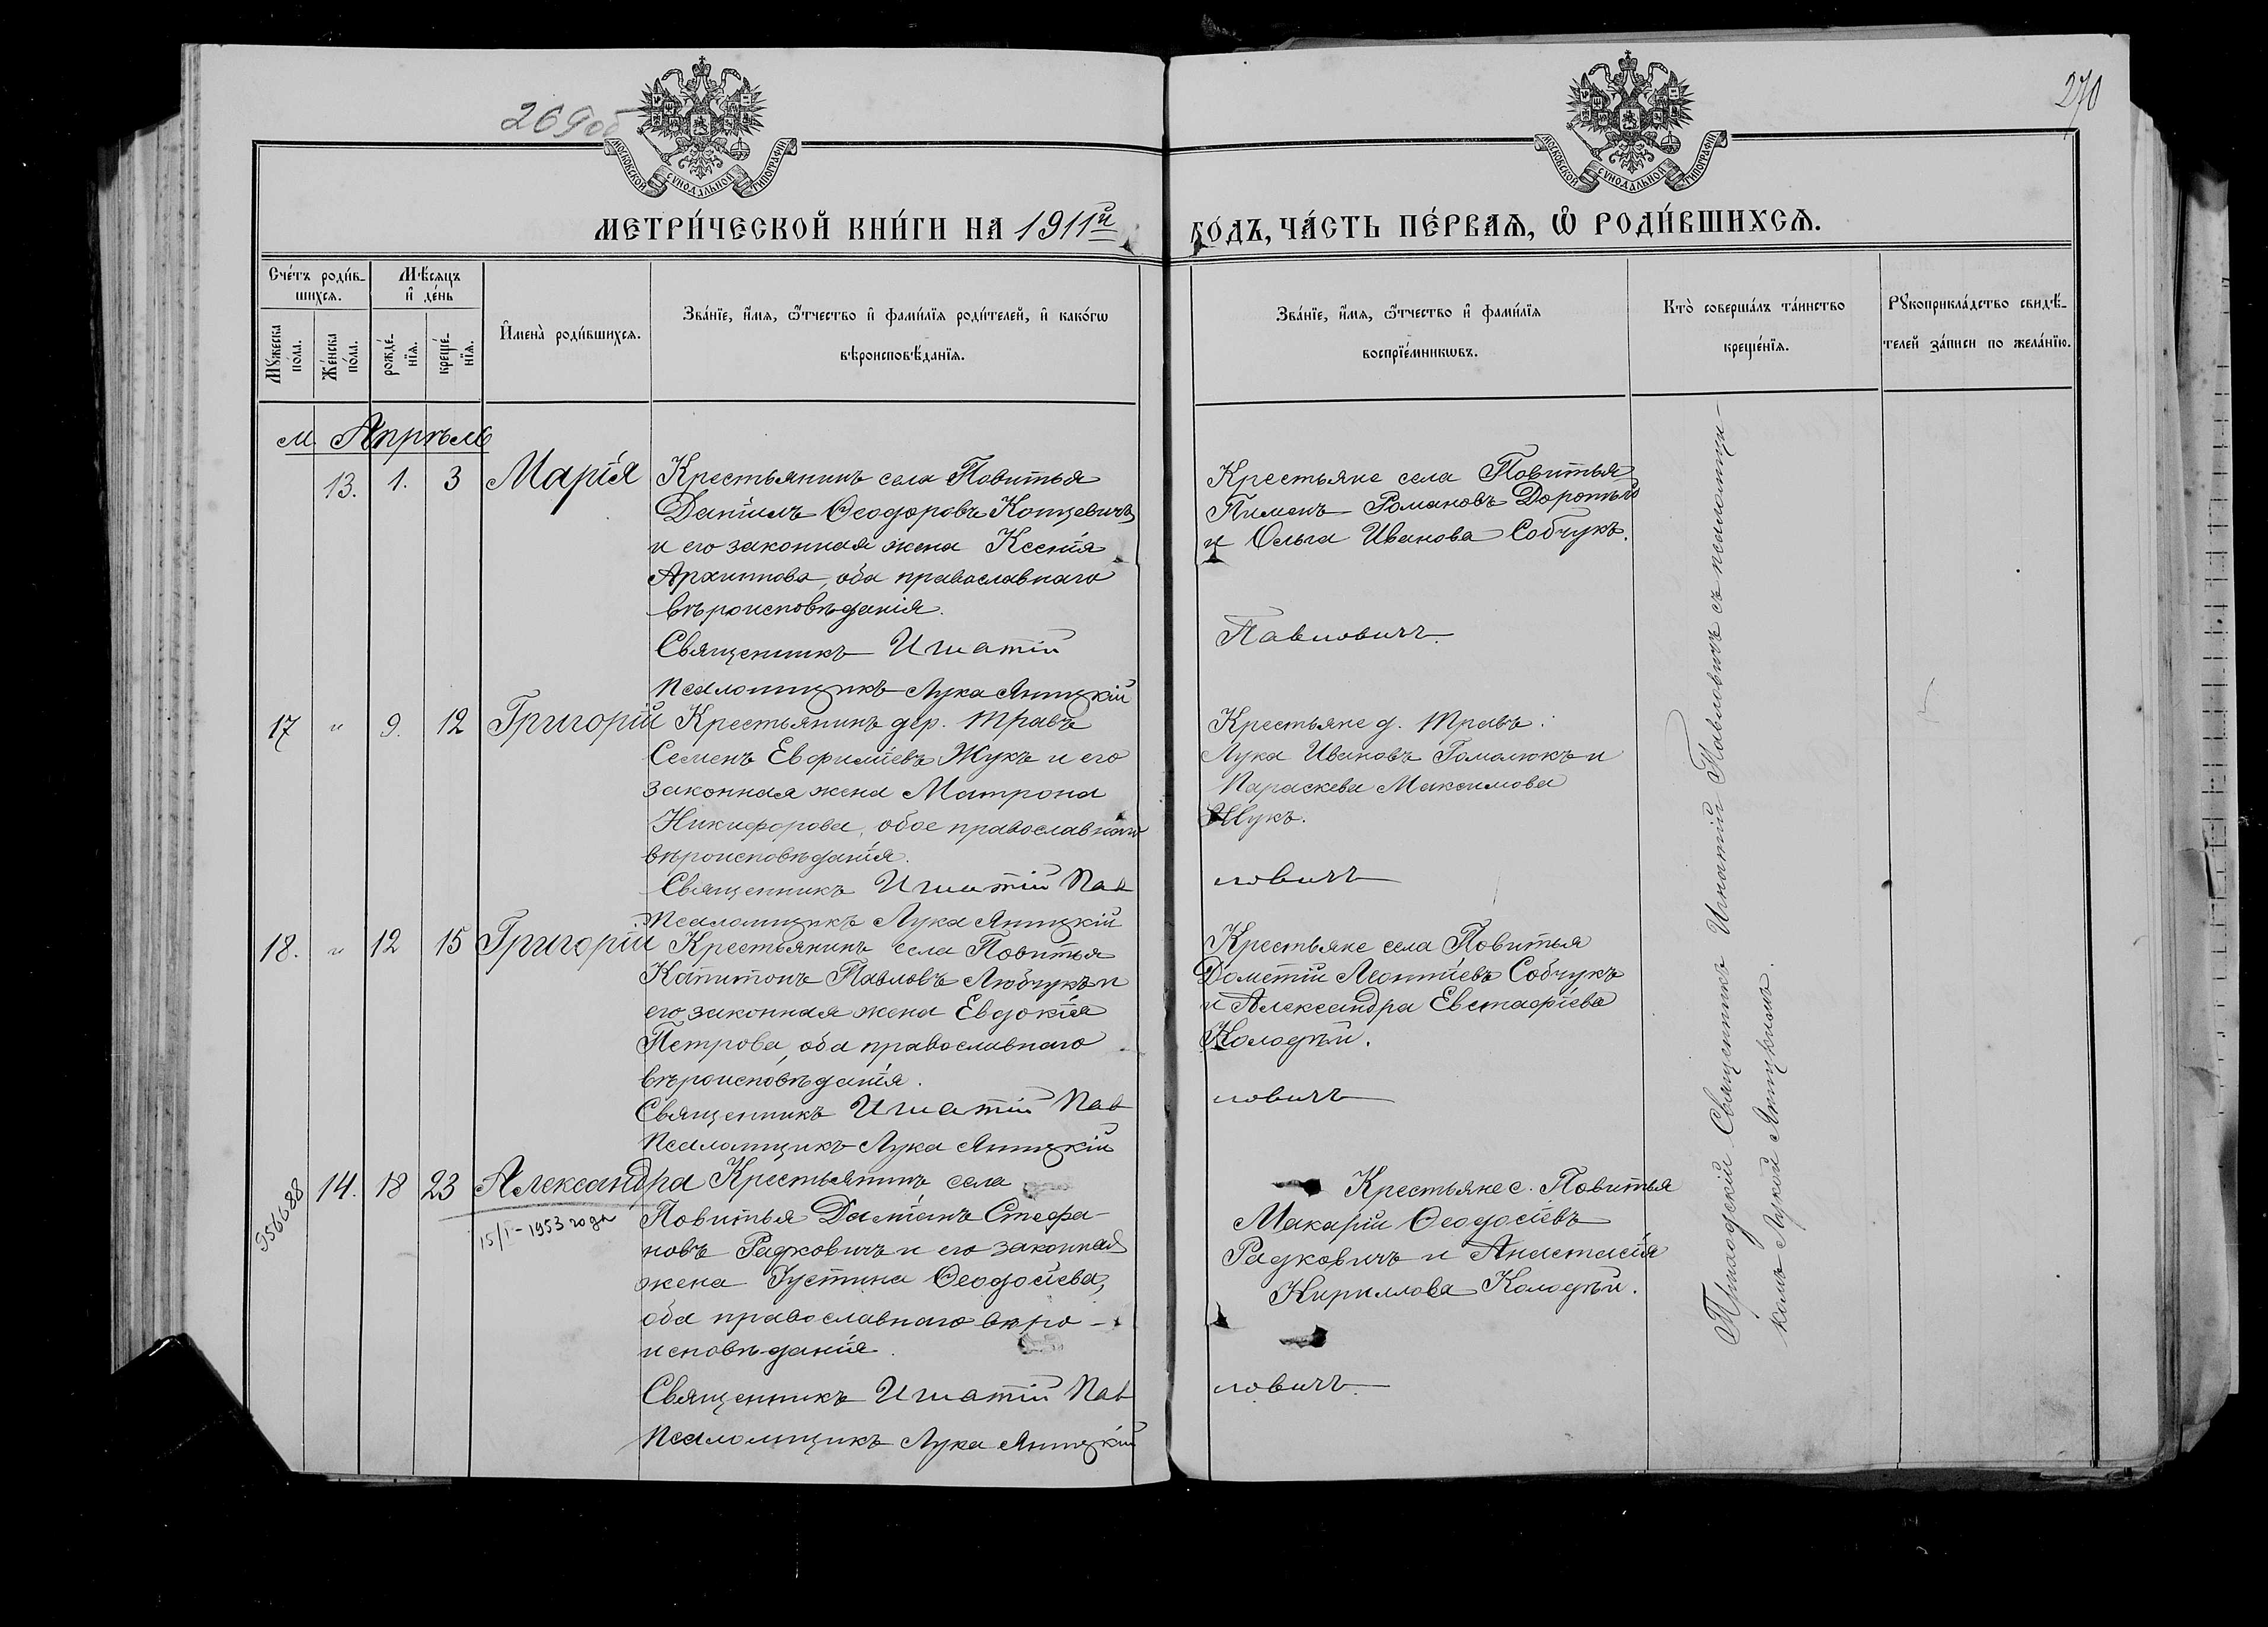 269об
270
МОСКОВСКОЙ СѴНОДАЛЬНОЙ ТИПОГРАФІИ
МОСКОВСКОЙ СѴНОДАЛЬНОЙ ТИПОГРАФІИ
МЕТРИ́ЧЕСКОЙ КНИ́ГИ НА 1911й ГО́ДЪ, ЧА́СТЬ ПЕ́РВАѦ, Ѡ҆ РОДИ́ВШИХСѦ.
Сче́тъ роди́в-
шихсѧ.
Мѣ́сѧцъ
и҆ де́нь
Мꙋ́жеска
по́ла.
Же́нска
по́ла.
рожде́-
нїѧ.
креще́-
нїѧ.
И҆мена̀ роди́вшихсѧ.
Зва́нїе, и҆́мѧ, ѻ҆́тчество и҆ фами́лїѧ роди́телей, и҆ како́гѡ
вѣроисповѣ́данїѧ.
Зва́нїе, и҆́мѧ, ѻ҆́тчество и҆ фами́лїѧ
воспрїе́мникѡвъ.
Кто̀ соверша́лъ та́инство
креще́нїѧ.
Рꙋкоприкла́дство свидѣ́-
телей за́писи по жела́нїю.
м. Апрѣль
13. 1. 3 Марія
Крестьянинъ села Повитья
Даніилъ Ѳеодоровъ Концевичъ
и его законная жена Ксенія
Архиппова, оба православнаго
вѣроисповѣданія.
Священникъ Игнатій
Псаломщикъ Лука Яницкій
Крестьяне села Повитья
Пименъ Романовъ Доротью
и Ольга Иванова Собчукъ.
Павловичъ.
17 " 9. 12 Григорій
Крестьянинъ дер. Травъ
Семенъ Евфиміевъ Жукъ и его
законная жена Матрона
Никифорова, обое православнаго
вѣроисповѣданія.
Священникъ Игнатій Пав
Псаломщикъ Лука Яницкій
Крестьяне д. Травъ:
Лука Ивановъ Гомолюкъ и
Параскева Максимова
Жукъ.
ловичъ
18. " 12 15 Григорій
Крестьянинъ села Повитья
Капитонъ Павловъ Любчукъ и
его законная жена Евдокія
Петрова, оба православнаго
вѣроисповѣданія.
Священникъ Игнатій Пав
Псаломщикъ Лука Яницкій
Крестьяне села Повитья
Дометій Леонтіевъ Собчукъ
и Александра Евстафіева
Колодѣй.
ловичъ
956688
14. 18 23 Александра
15/I-1953 года
Крестьянинъ села
Повитья Даміанъ Стефа-
новъ Радковичъ и его законная
жена Іустина Ѳеодосіева,
оба православнаго вѣро-
исповѣданія.
Священникъ Игнатій Пав
Псаломщикъ Лука Яницкій
Крестьяне с. Повитья
Макарій Ѳеодосіевъ
Радковичъ и Анастасія
Кириллова Колодѣй.
ловичъ.
Приходскій Священникъ Игнатій Павловичъ съ псаломщи-
комъ Лукой Яницкимъ.